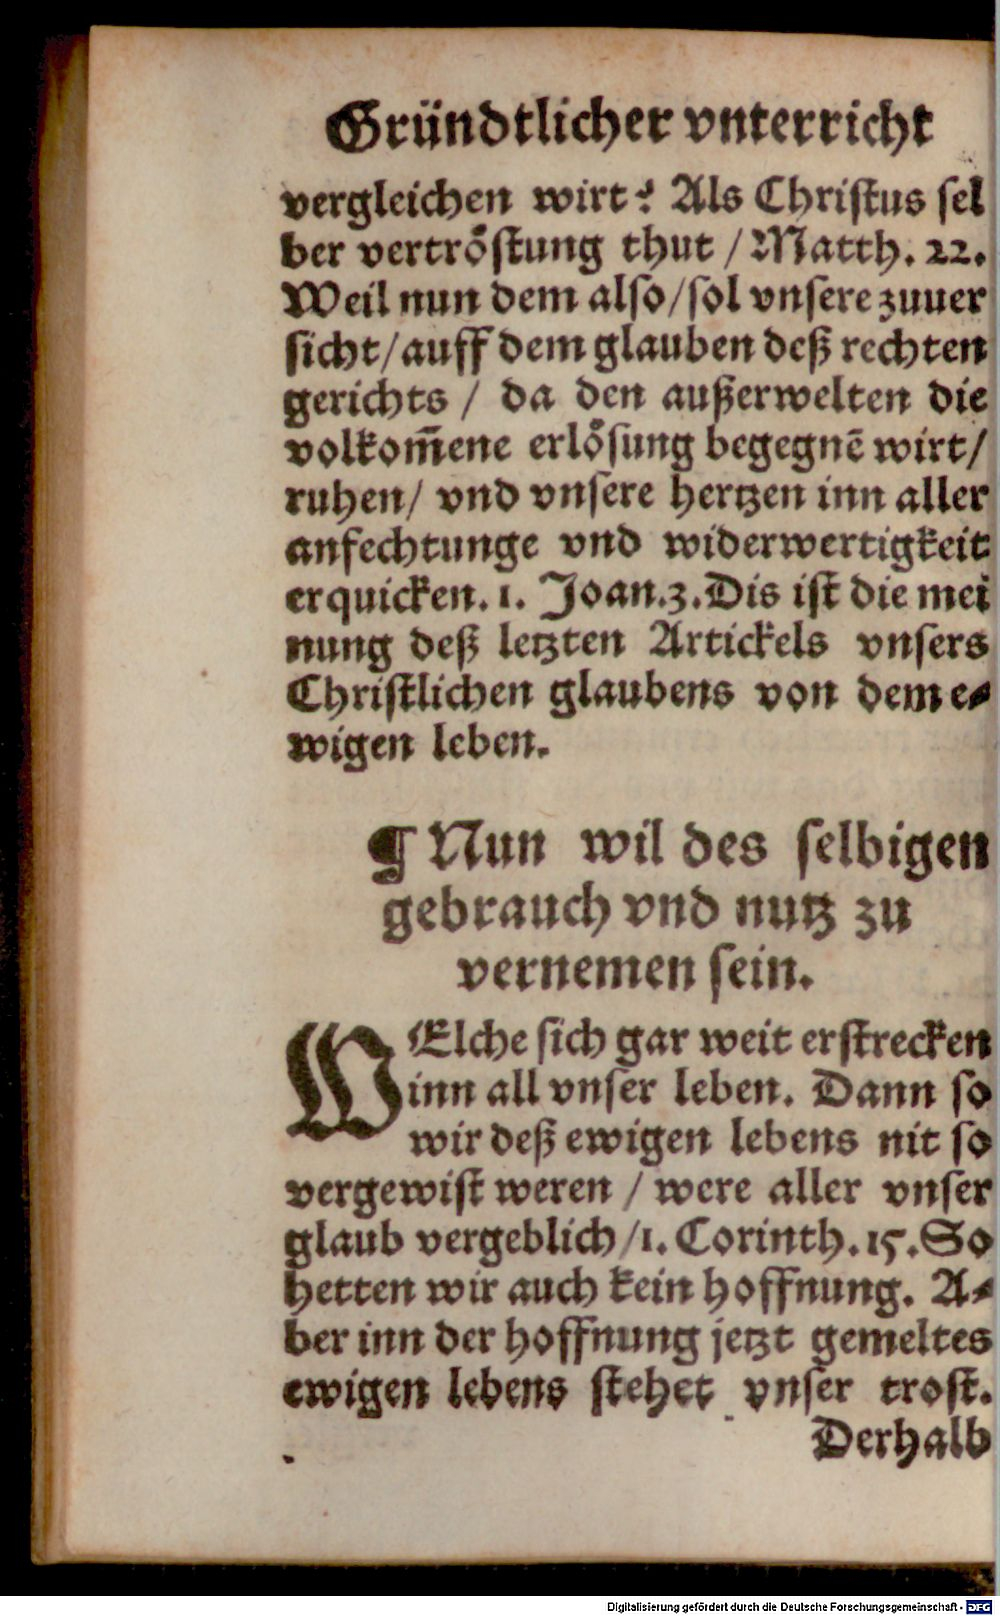 Gründtlicher vnterricht
vergleichen wirt? Als Christus sel
ber vertröstung thut / Matth. 22.
Weil nun dem also/sol vnsere zuuer
sicht/auff dem glauben deß rechten
gerichts / da den außerwelten die
volkom̄ene erlösung begegnē wirt/
ruhen/ vnd vnsere hertzen inn aller
anfechtunge vnd widerwertigkeit
erquicken. 1. Joan.3. Dis ist die mei
nung deß letzten Artickels vnsers
Christlichen glaubens von dem e-
wigen leben.
¶ Nun wil des selbigen
gebrauch vnd nutz zu
vernemen sein.
WElche sich gar weit erstrecken
inn all vnser leben. Dann so
wir deß ewigen lebens nit so
vergewist weren / were aller vnser
glaub vergeblich/1. Corinth.15. So
hetten wir auch kein hoffnung. A-
ber inn der hoffnung jetzt gemeltes
ewigen lebens stehet vnser trost.
Derhalb
Digitalisierung gefördert durch die Deutsche Forschungsgemeinschaft - DFG